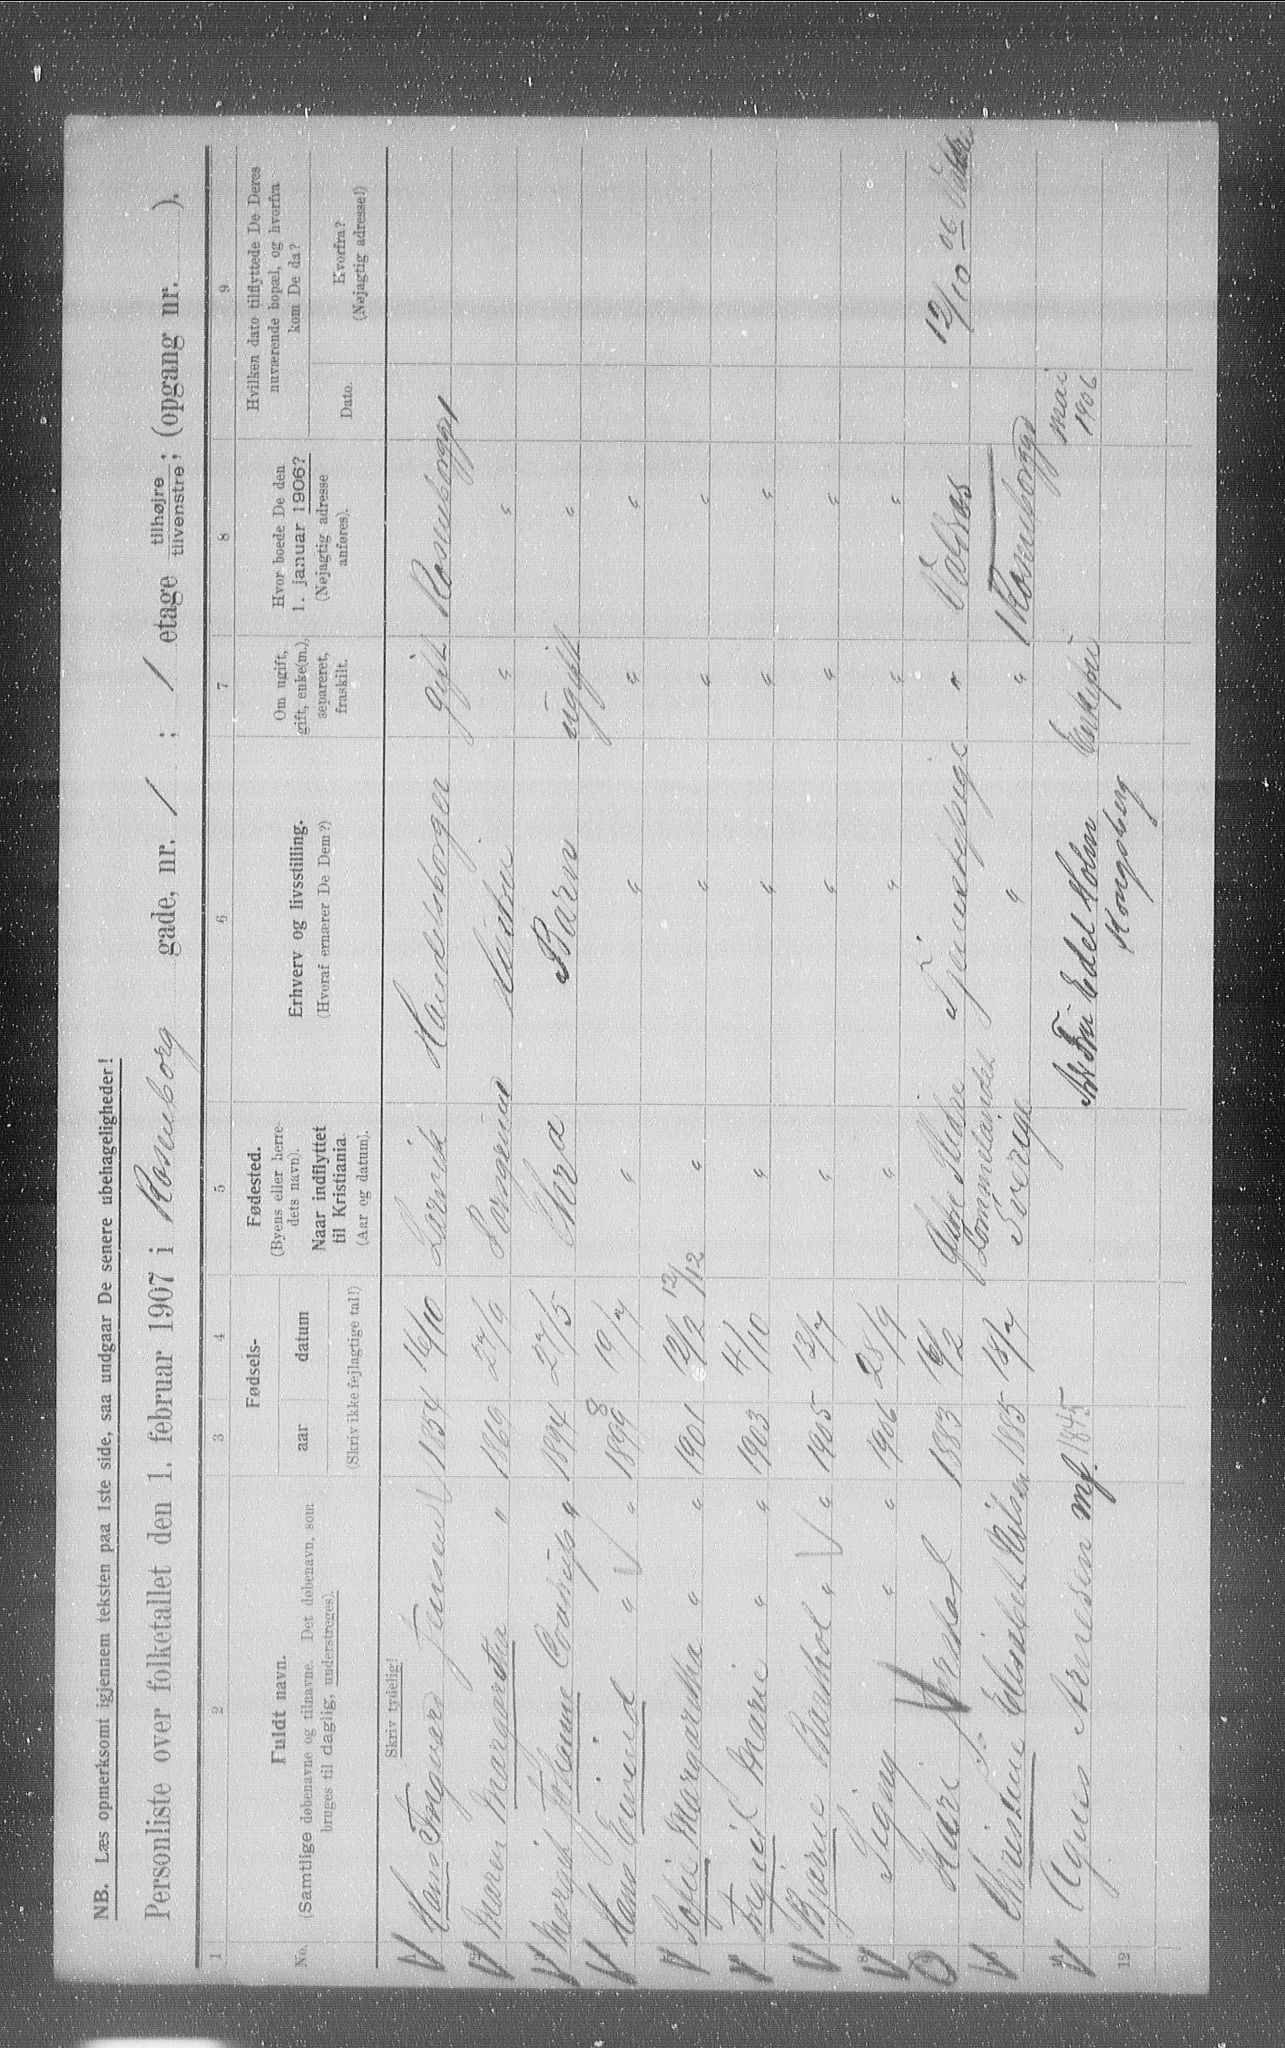 NB. Læs opmerksomt igjennem teksten paa 1ste side, saa undgaar De senere ubehageligheder!
Personliste over folketallet den 1. februar 1907 i Rosenborg gade, nr. 1 ; 1 etage tilhøjre tilvenstre; (opgang nr. ).
1 2 3 4 5 6 7 8 9
No. Fuldt navn. (Samtlige døbenavne og tilnavne. Det døbenavn, som bruges til daglig, understreges). Fødsels- aar datum (Skriv ikke fejlagtige tal!) Fødested. (Byens eller herredets navn). Naar indflyttet til Kristiania. (Aar og datum). Erhverv og livsstilling. (Hvoraf ernærer De Dem?) Om ugift, gift, enke(m.), separeret, fraskilt. Hvor boede De den 1. januar 1906? (Nøjagtig adresse anføres). Hvilken dato tilflyttede De Deres nuværende bopæl, og hvorfra kom De da? Dato. Hvorfra? (Nøjagtig adresse!)
Skriv tydelig!
Hans Ingvard Jensen 1854 16/10 Larvik Handelsborger gift Rosenborggt 1
Maren Margaretha " 1869 27/9 Porsgrund Hustru " "
Margit Johanne " 1894 27/5 Chr.a Barn ugift "
Hans Eivind " " 1899 8 19/7 " " " "
Sofie Margaretha " " 1901 12/2 12/12 " " " "
Ingrid Marie " " 1903 4/10 " " " "
Bjarne " " 1905 3/7 " " " "
Signy " " 1906 28/9 " " " "
Kari 1883 16/2 Slidre Tjenestepige " Valdres 12/10 06 Valdres
Elisabet Nilsen 1885 18/7 Sverige " " Rosenborggd 1
Agnes Arnesen mf. 1845 Fru Edel Holm Kongsberg Enkefru mai 1906
12